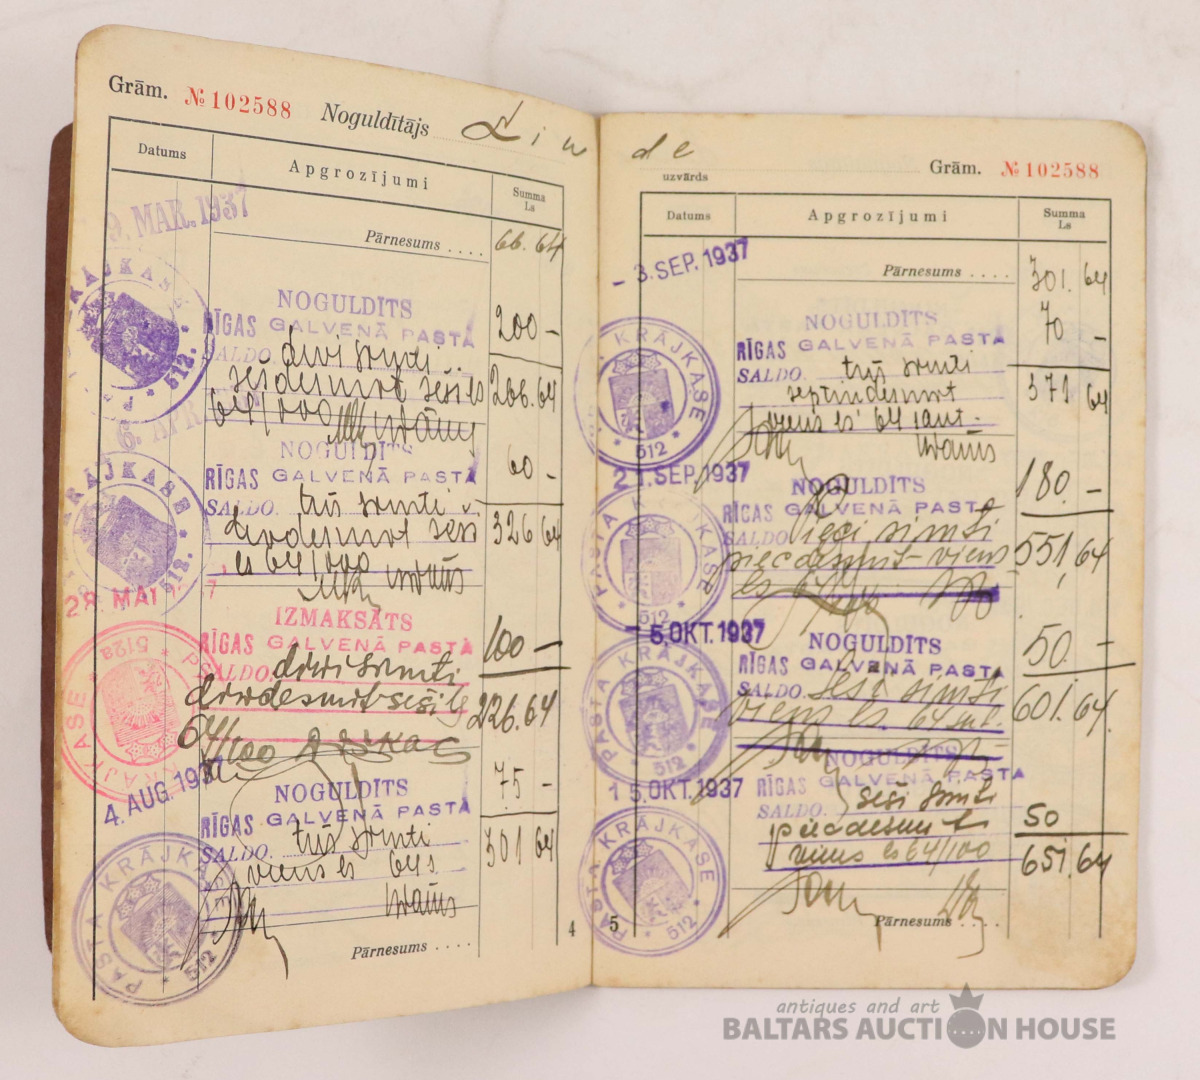 Grām. № 102588 Noguldītājs Lin
Datums Apgrozījumi Summa Ls
Pārnesums .... 66. 64
9. MAR. 1937
NOGULDĪTS
RĪGAS GALVENĀ PASTĀ 200 -
SALDO. divi simti
sešdesmit seši ls 266.64
64/100
6. APR
NOGULDĪTS
RĪGAS GALVENĀ PASTĀ 60 -
SALDO. trīs simti
divdesmit seši 326 64
ls 64/100
28 MAI 7
IZMAKSĀTS
RĪGAS GALVENĀ PASTĀ 100 -
SALDO. divi simti
divdesmit seši ls 226.64
64/100
4. AUG. 1937
NOGULDĪTS 75 -
RĪGAS GALVENĀ PASTĀ
SALDO. trīs simti
viens ls 64 s 301 64
PASTA KRĀJKASE * 512 *
Pārnesums ....
4
de
uzvārds
Grām. № 102588
Datums Apgrozījumi Summa Ls
Pārnesums .... 301. 64
- 3. SEP. 1937
NOGULDĪTS 70 -
RĪGAS GALVENĀ PASTĀ
SALDO. trīs simti 371 64
septiņdesmit
viens ls 64 sant.
KRĀJKASE * 512 *
21. SEP. 1937
NOGULDĪTS 180 -
RĪGAS GALVENĀ PASTĀ
SALDO. pieci simti
piecdesmit viens 551,64
PASTA KRĀJKASE * 512 *
- 5. OKT. 1937
NOGULDĪTS 50 -
RĪGAS GALVENĀ PASTĀ
SALDO. seši simti
viens ls 64 601.64
PASTA KRĀJKASE * 512 *
15. OKT. 1937
NOGULDĪTS
RĪGAS GALVENĀ PASTĀ
SALDO. seši simti 50
piecdesmit
viens ls 64/100 651.64
PASTA KRĀJKASE * 512 *
Pārnesums ....
5
antiques and art
BALTARS AUCTION HOUSE